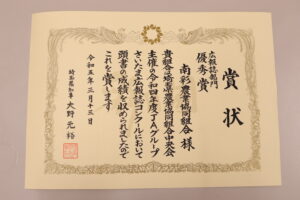 賞状
広報誌部門
優秀賞
南彩農業協同組合 様
貴組合は埼玉県農業協同組合中央会
主催の令和四年度JAグループ
さいたま広報誌コンクールにおいて
頭書の成績を収められましたので
これを賞します
令和五年三月十三日
埼玉県知事 大野元裕